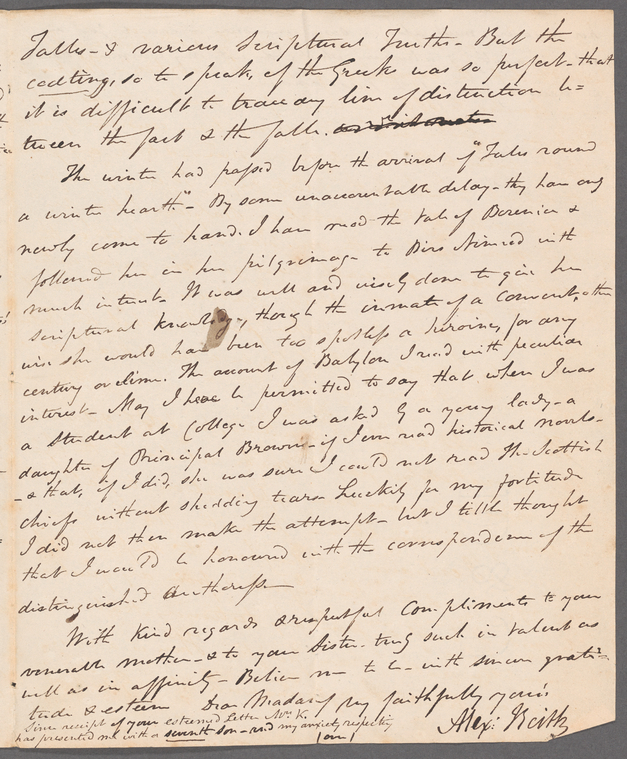 Fable - & various Scriptural Truths - But the
coating, so to speak, of the Greeks was so perfect - that
it is difficult to trace any line of distinction be=
tween the fact & the fable.
The winter had passed before the arrival of "Tales round
a winter hearth" - By some unaccountable delay - they have only
newly come to hand. I have read the tale of Berenice &
followed her in her pilgrimage to Birs Nimrod with
much interest - It was well and wisely done to give her
scriptural knowledge, though the inmate of a convent, other
wise she would have been too spotless a heroine, for any
century or clime. The account of Babylon I read with peculiar
interest - May I here be permitted to say that when I was
a Student at College I was asked by a young lady - a
daughter of Principal Brown - if I ever read historical novels -
- & that, if I did, she was sure I could not read the Scottish
chiefs without shedding tears - Luckily for my fortitude
I did not then make the attempt - but I little thought
that I would be honoured with the correspondence of the
distinguished Authoress -
With kind regards & respectful Compliments to your
venerable mother - & to your Sister - truly such in talent as
well as in affinity - Believe me to be - with sincere grati=
tude & esteem Dear Madam my faithfully yours
Alex: Keith
Since receipt of your esteemed Letter Mrs. K.
has presented me with a seventh son - and my anxiety respecting